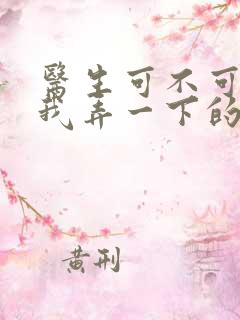 醫生可不可
我弄一下的
黃刑